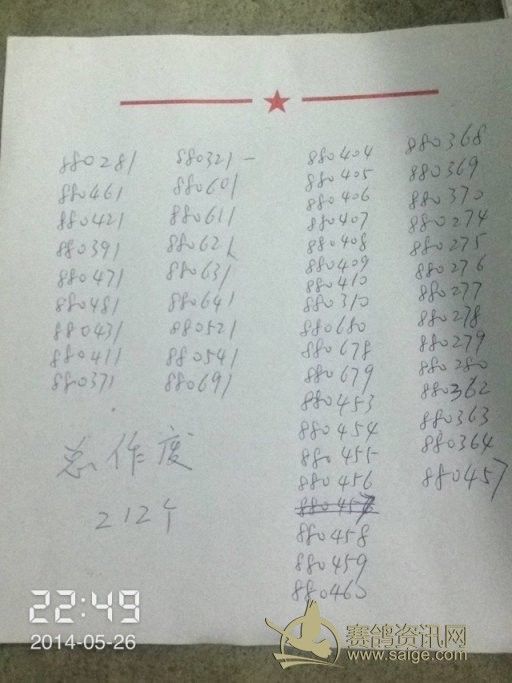 880281
880461
880421
880391
880471
880481
880431
880411
880371
880321 -
880601
880611
880621
880631
880641
880521
880541
880691
880404
880405
880406
880407
880408
880409
880410
880310
880680
880678
880679
880453
880454
880455
880456
880457
880458
880459
880460
880368
880369
880370
880274
880275
880276
880277
880278
880279
880280
880362
880363
880364
880457
总作废
212个
22:49
2014-05-26
赛鸽资讯网
www.saige.com